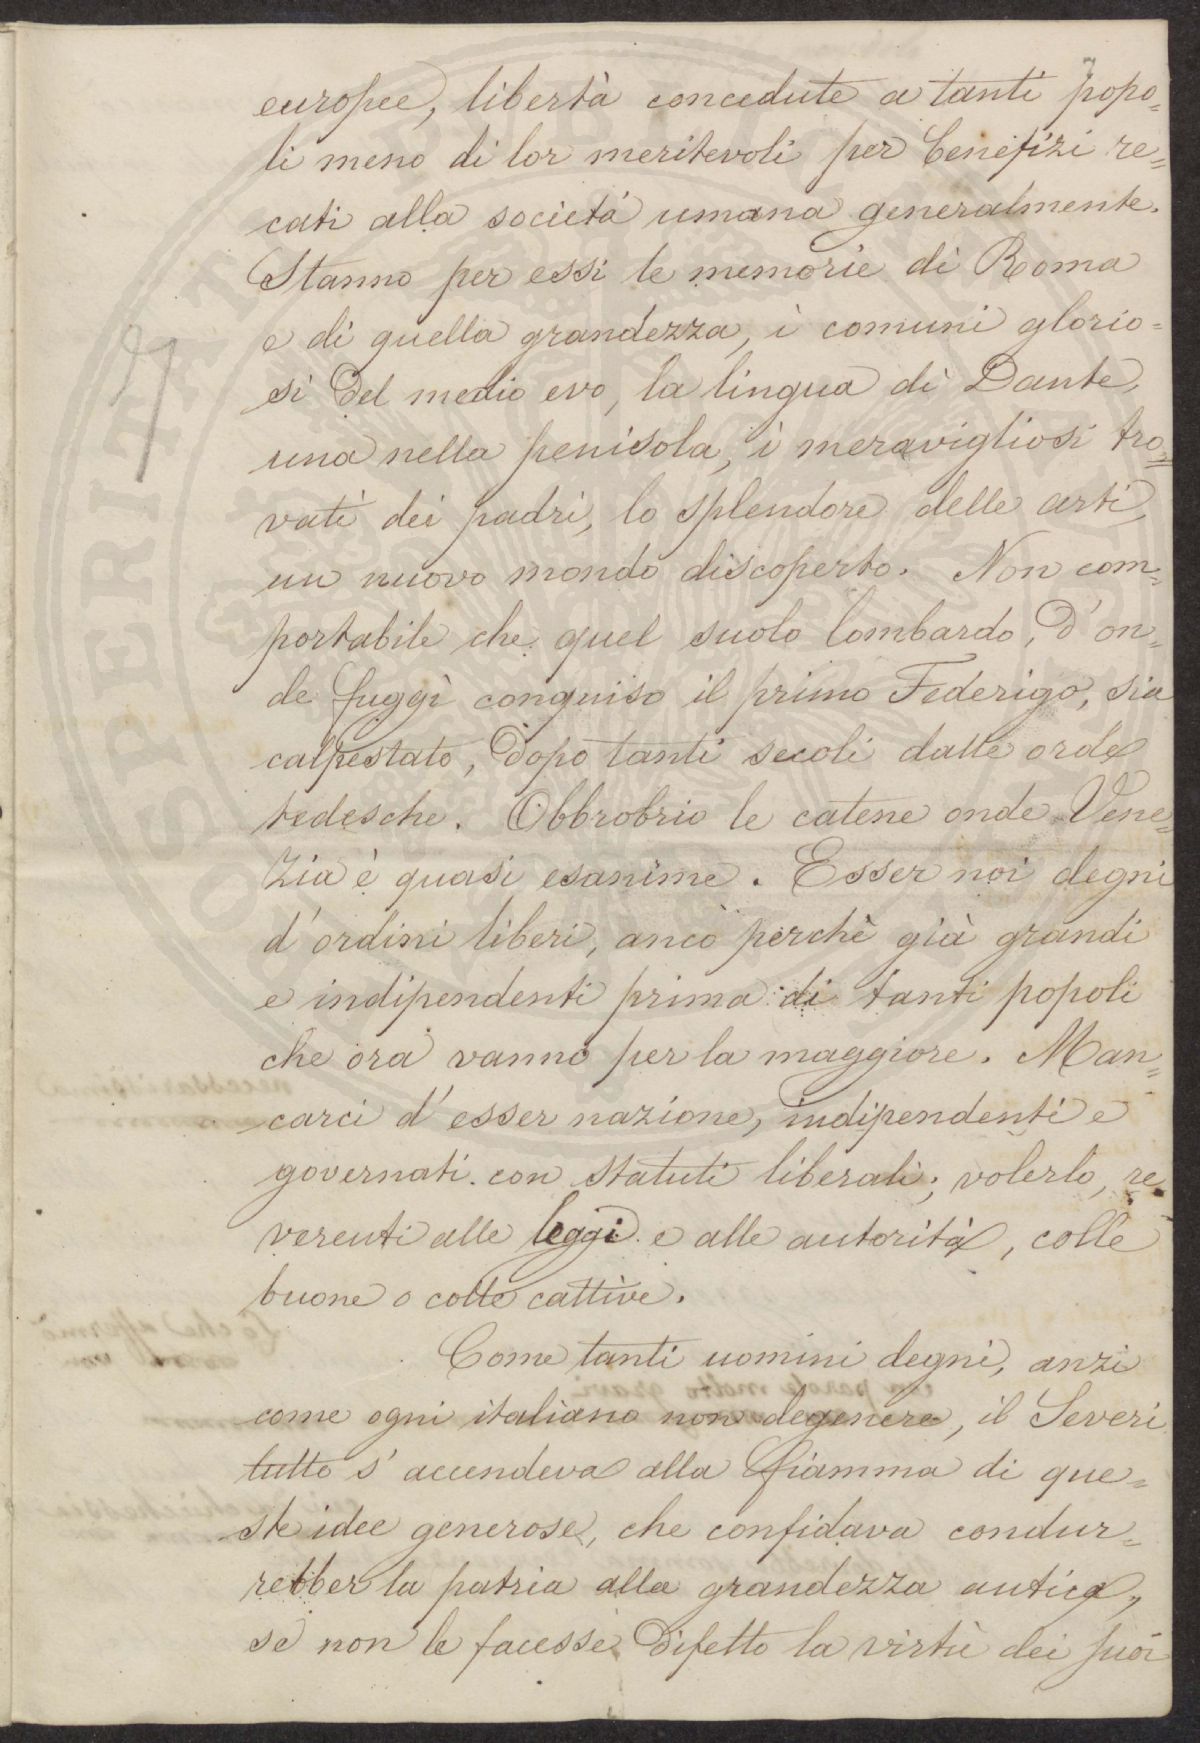 7
europee, libertà concedute a tanti popo-
li meno di lor meritevoli per benefizi re=
cati alla società umana generalmente.
Stanno per essi le memorie di Roma
e di quella grandezza, i comuni glorio=
si del medio evo, la lingua di Dante,
una nella penisola, i meravigliosi tro=
vati dei padri, lo splendore delle arti,
un nuovo mondo discoperto. Non com=
portabile che quel suolo lombardo, d'on=
de fuggì conquiso il primo Federigo, sia
calpestato, dopo tanti secoli dalle orde
tedesche. Obbrobrio le catene onde Vene=
zia è quasi esanime. Esser noi degni
d'ordini liberi, anco perchè già grandi
e indipendenti prima di tanti popoli
che ora vanno per la maggiore. Man=
carci d'esser nazione, indipendenti e
governati con statuti liberali; volerlo, re
verenti alle leggi e alle autorità, colle
buone o colle cattive.
Come tanti uomini degni, anzi
come ogni italiano non degenere, il Severi
tutto s'accendeva alla fiamma di que=
ste idee generose, che confidava condur=
rebber la patria alla grandezza antica,
se non le facesse difetto la virtù dei suoi